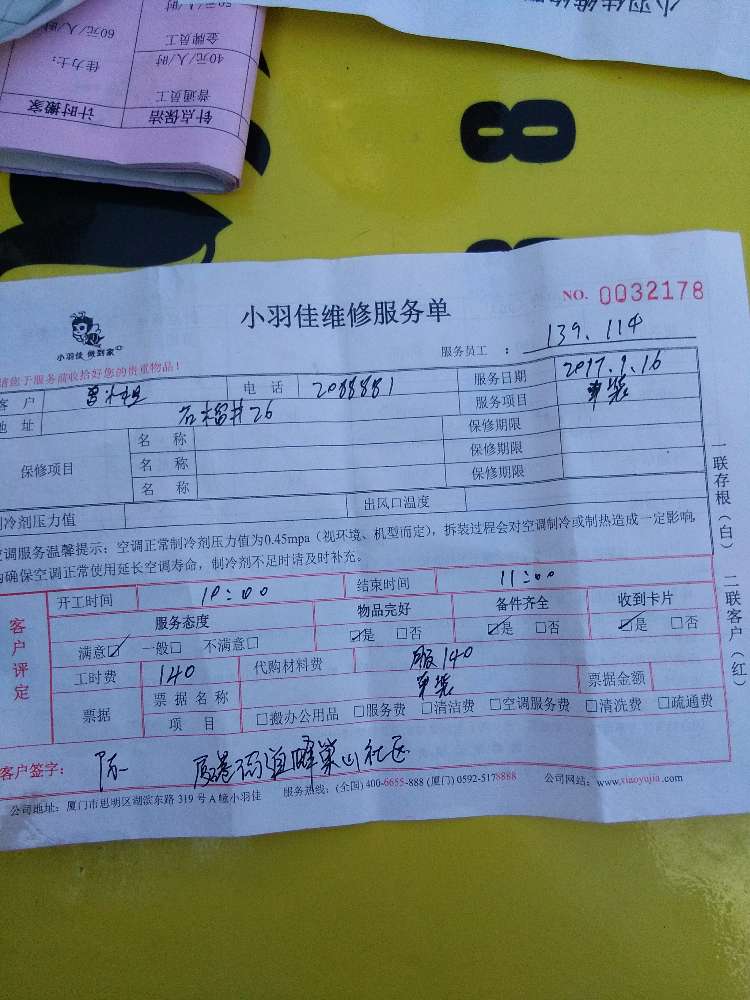 小羽佳维修服务
50元/人/时
60元/人/时
金牌员工
40元/人/时
佳力士:
普通员工
计时搬家
钟点保洁
8
小羽佳维修服务单
NO. 0032178
小羽佳 做到家
服务员工 : 139、114
请您于服务前收拾好您的贵重物品!
客 户
电 话 2088881
服务日期 2017.1.16
地 址 石榴井26
服务项目 单装
保修项目
名 称 保修期限
名 称 保修期限
名 称 保修期限
制冷剂压力值
出风口温度
空调服务温馨提示:空调正常制冷剂压力值为0.45mpa(视环境、机型而定),拆装过程会对空调制冷或制热造成一定影响,
为确保空调正常使用延长空调寿命,制冷剂不足时请及时补充。
一联存根(白) 二联客户(红)
客户评定
开工时间 10:00 结束时间 11:00
服务态度 物品完好 备件齐全 收到卡片
满意☑ 一般□ 不满意□ ☑是 □否 ☑是 □否 ☑是 □否
工时费 140 代购材料费 服140
单装
票据金额
票据
票据名称
项 目 □搬办公用品 □服务费 □清洁费 □空调服务费 □清洗费 □疏通费
客户签字: 厦港街道蜂巢山社区
公司地址:厦门市思明区湖滨东路 319 号 A 幢小羽佳 服务热线:(全国) 400-6655-888 (厦门) 0592-5178888 公司网站:www.xiaoyujia.com